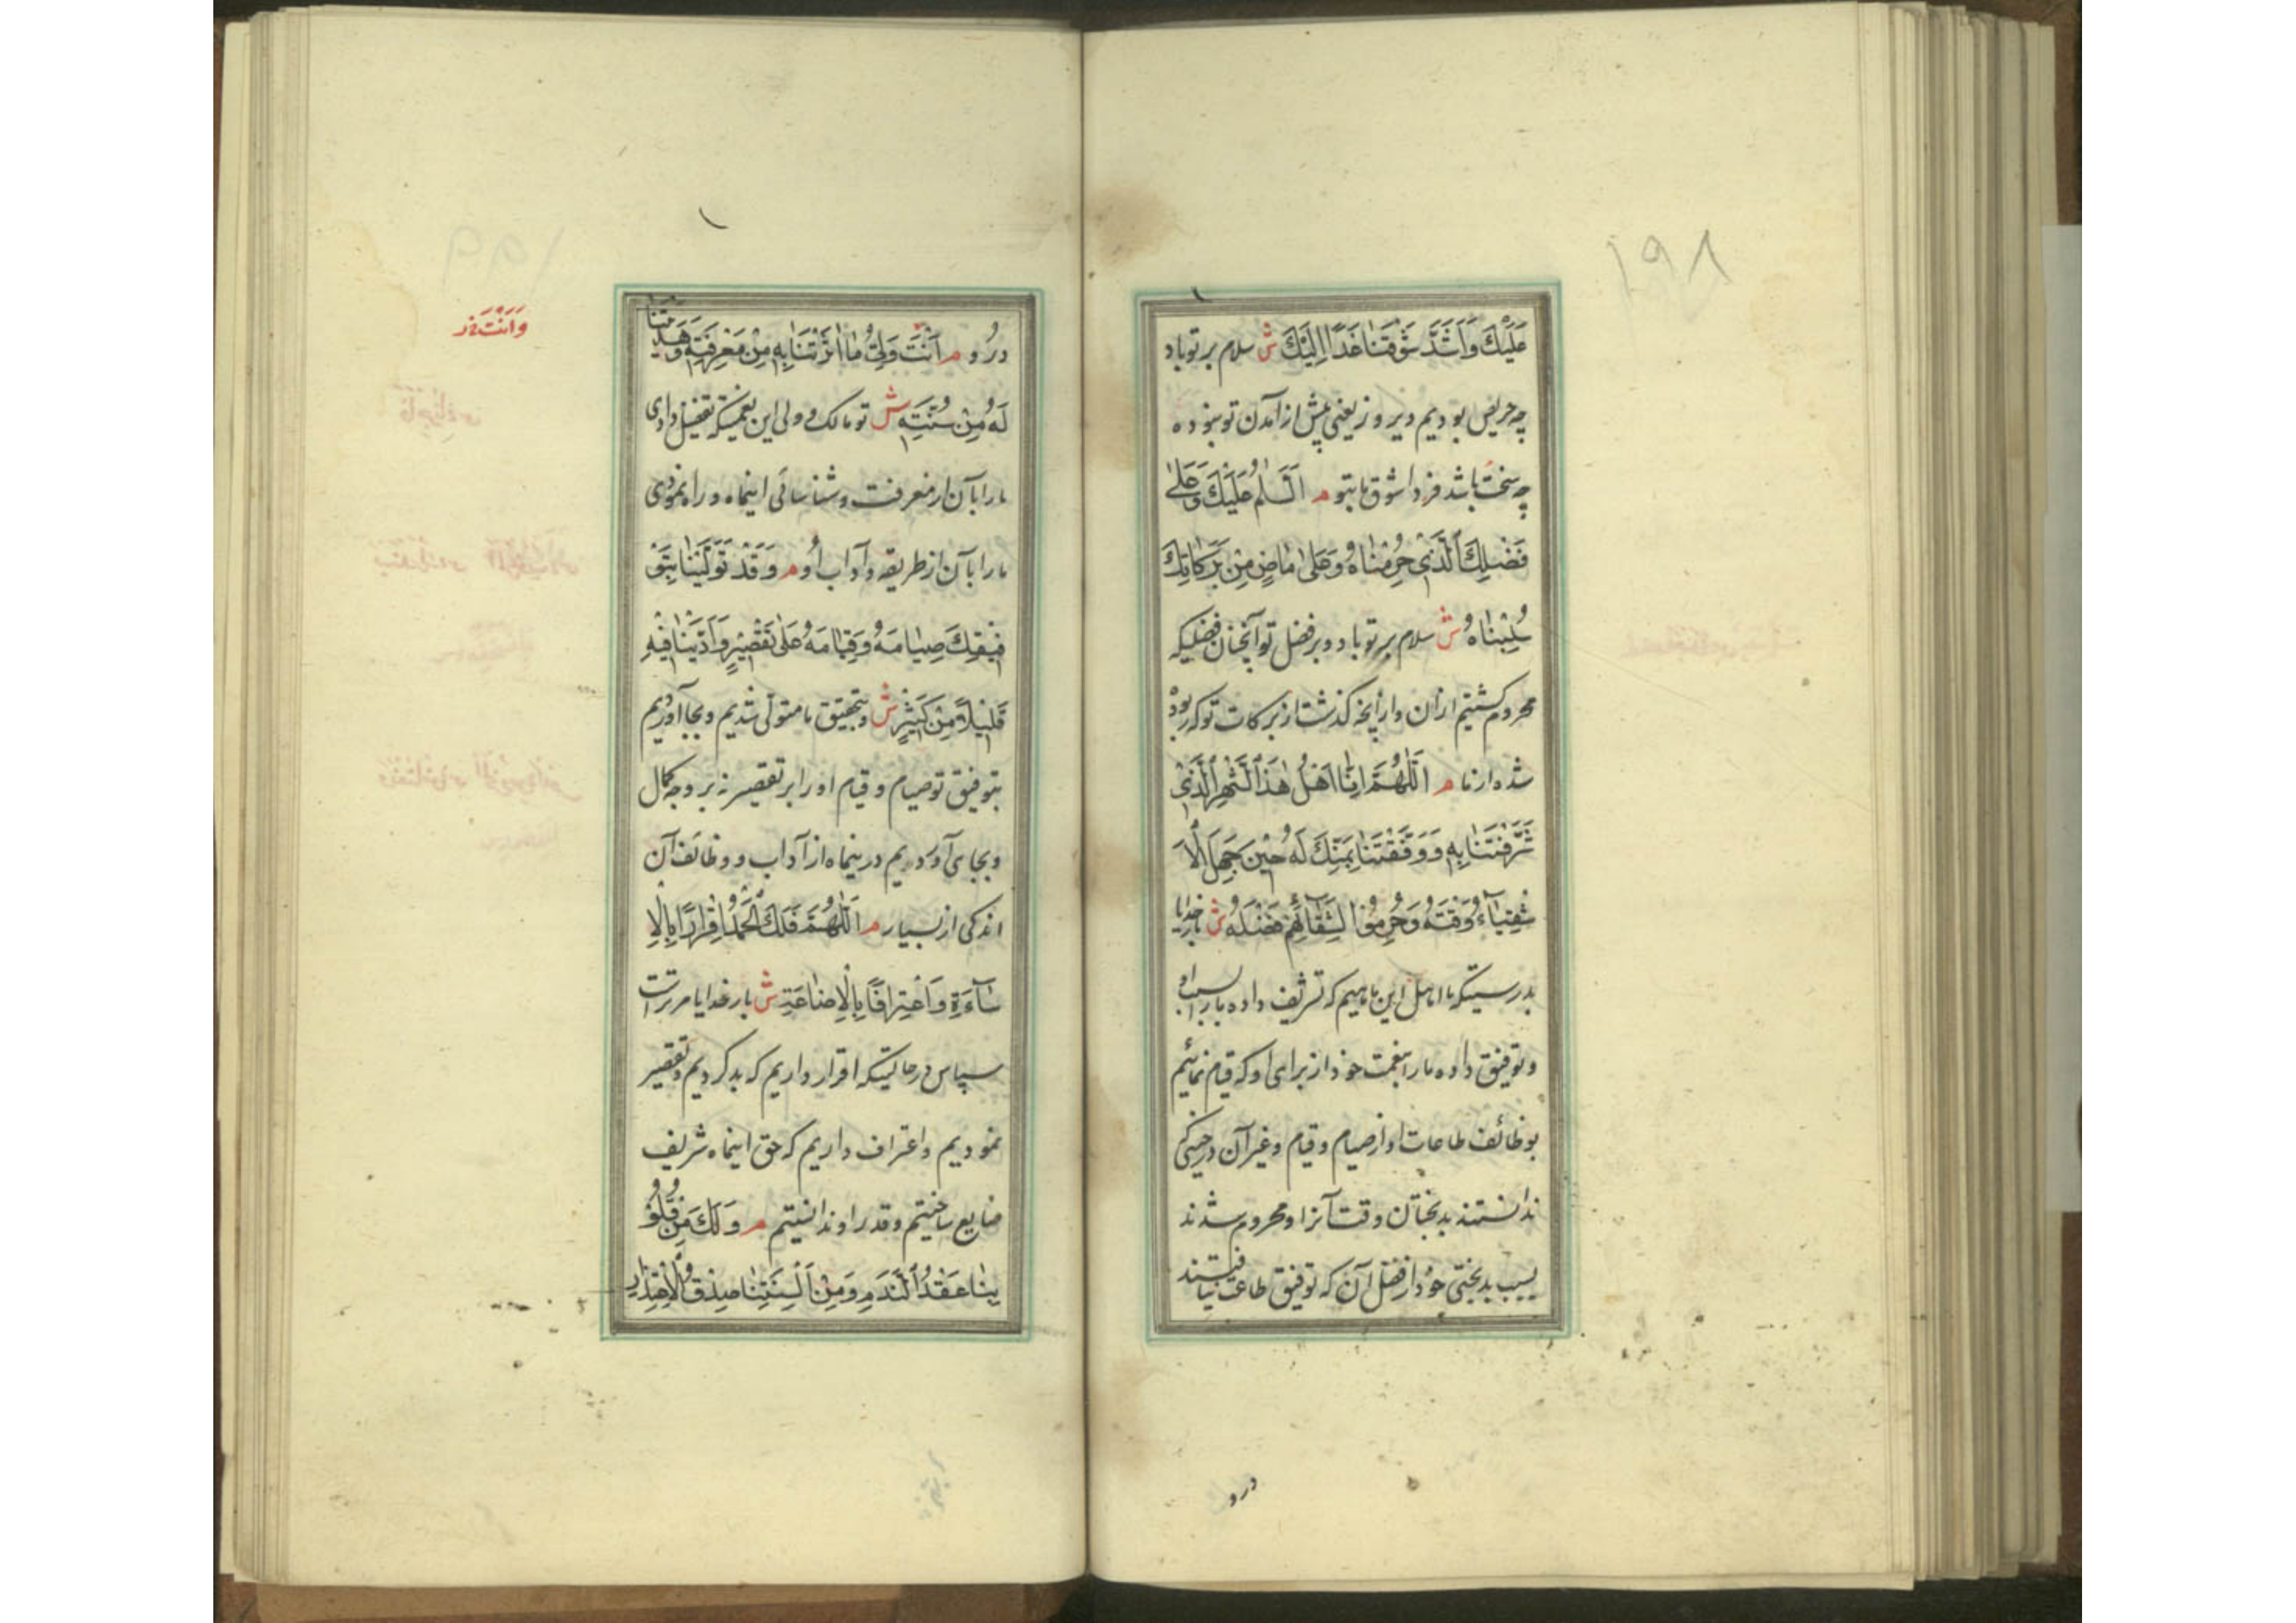 ۱۹۸
عَلَيْكَ وَاَشَدَّ شَوْقَنٰا غَدًا اِلَيْكَ ش سلام بر تو باد
چه حریص بودیم دیروز یعنی پیش از آمدن تو بتو و ه
چه سخت باشد فردا شوق ما بتو م اَلسَّلٰامُ عَلَيْكَ وَعَلٰى
فَضْلِكَ الَّذِىْ حُرِمْنٰاهُ وَعَلٰى مٰاضٍ مِنْ بَرَكٰاتِكَ
سُلِبْنٰاهُ ش سلام بر تو باد و بر فضل تو آنچنان فضلیکه
محروم کشتیم ازان و از آنچه کذشت از برکات تو که ربوده
شده از ما م اَللّٰهُمَّ اِنّٰا اَهْلُ هٰذَا الشَّهْرِ الَّذِىْ
شَرَّفْتَنٰا بِهِ وَوَفَّقْتَنٰا بِمَنِّكَ لَهُ حِيْنَ جَهِلَ الْاَ
شْقِيٰآءُ وَقْتَهُ وَحُرِمُوْا لِشَقٰآئِهِمْ فَضْلَهُ ش بار خدایا
بدرستیکه ما اهل این ماهیم که تشریف داده ما را بسبب او
و توفیق داده ما را بنعمت خود از برای او که قیام نمائیم
بوظائف طاعات او از صیام و قیام و غیر آن در حینیکه
ندانستند بدبختان وقت آنرا و محروم شدند
بسبب بدبختی خود از فضل آن که توفیق طاعت نیافتند
درو
۱۹۹
وَاَنْتَ خ
درو م اَنْتَ وَلِىُّ مٰا اٰثَرْتَنٰا بِهِ مِنْ مَعْرِفَتِهِ وَهَدَيْتَنٰا
لَهُ مِنْ سُنَّتِهِ ش تو مالک و ولی این نعمتیکه تفضیل دادی
ما را بآن از معرفت و شناسائی اینماه و راه نمودی
ما را بآن از طریقه و آداب او م وَقَدْ تَوَلَّيْنٰا بِتَوْ
فِيْقِكَ صِيٰامَهُ وَقِيٰامَهُ عَلٰى تَقْصِيْرٍ وَاَدَّيْنٰا فِيْهِ
قَلِيْلًا مِنْ كَثِيْرٍ ش و بتحقیق ما متولی شدیم و بجا آوردیم
بتوفیق تو صیام و قیام او را بر تقصیر نه بر وجه کمال
و بجای آوردیم در ینماه از آداب و وظائف آن
اندکی از بسیار م اَللّٰهُمَّ فَلَكَ الْحَمْدُ اِقْرٰارًا بِالْاِ
سٰآءَةِ وَاعْتِرٰافًا بِالْاِضٰاعَةِ ش بار خدایا مر تراست
سپاس در حالتیکه اقرار داریم که بد کردیم و تقصیر
نمودیم و اعتراف داریم که حق اینماه شریف
ضایع ساختیم و قدر او ندانستیم م وَلَكَ مِنْ قُلُوْ
بِنٰا عَقْدُ النَّدَمِ وَمِنْ اَلْسِنَتِنٰا صِدْقُ الْاِعْتِذٰارِ